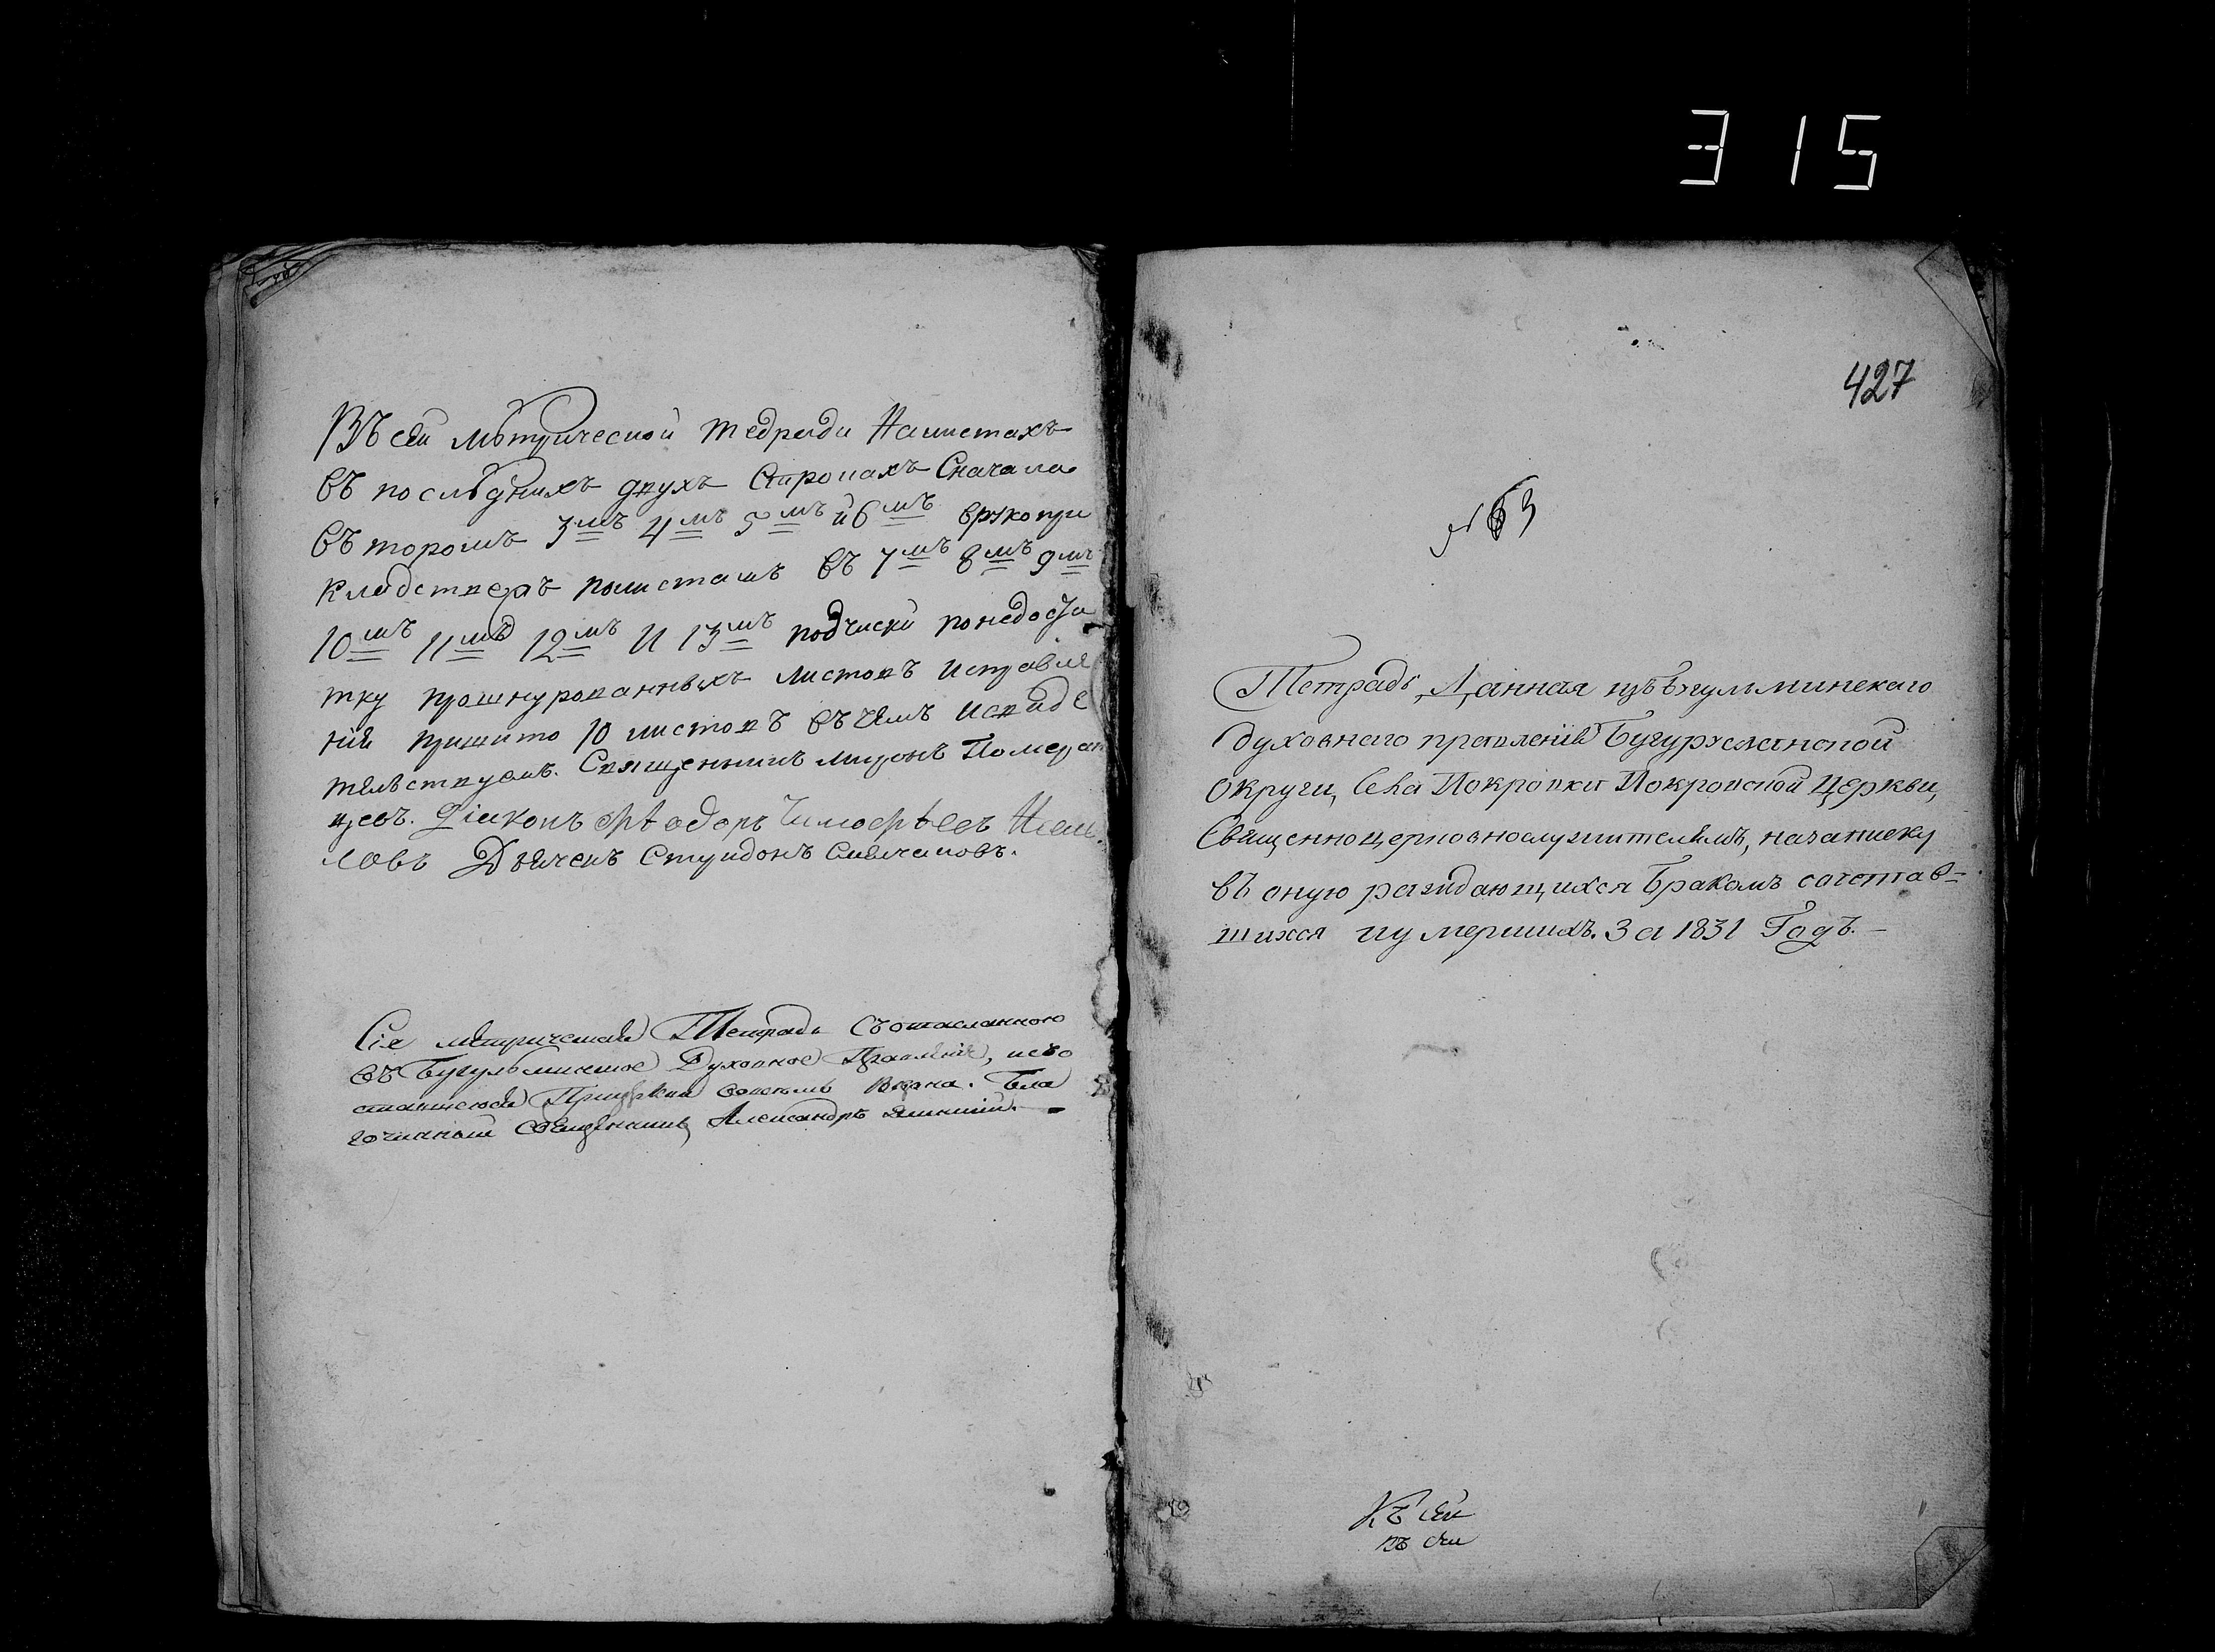 315
Въ сей мѣтрической тедради На листахъ
въ послѣднихъ двухъ Строкахъ Сначала
въ торомъ 3мъ 4мъ 5мъ и 6мъ врукопри
кладствехъ полистамъ въ 7мъ 8мъ 9мъ
10мъ 11мъ 12мъ И 13мъ подчиски понедоста
тку прошнурованныхъ листовъ Исправле
нiи пришито 10 листовъ въ чемъ Исвиде
тельствуемъ. Священникъ Миронъ Померан
цевъ. Дiаконъ Ѳеодоръ Тимофеевъ
ловъ Дьячекъ Спиридонъ
Сiя метрическая Тетрадь Съ отосланною
въ Бугульминское Духовное Правленiе, и съ о
ставшеюся При церкви во всемъ верна. Бла
гочинный Священникъ Александръ
427
№ 63
Тетрадь, Данная изъ Бугульминскаго
духовнаго правленiя Бугурусланской
округи, Села Покровки Покровской Церкви,
Священноцерковнослужителямъ, на записку
въ оную раждающихся Бракомъ сочетав=
шихся и умершихъ. За 1831 Годъ. —
Къ сей